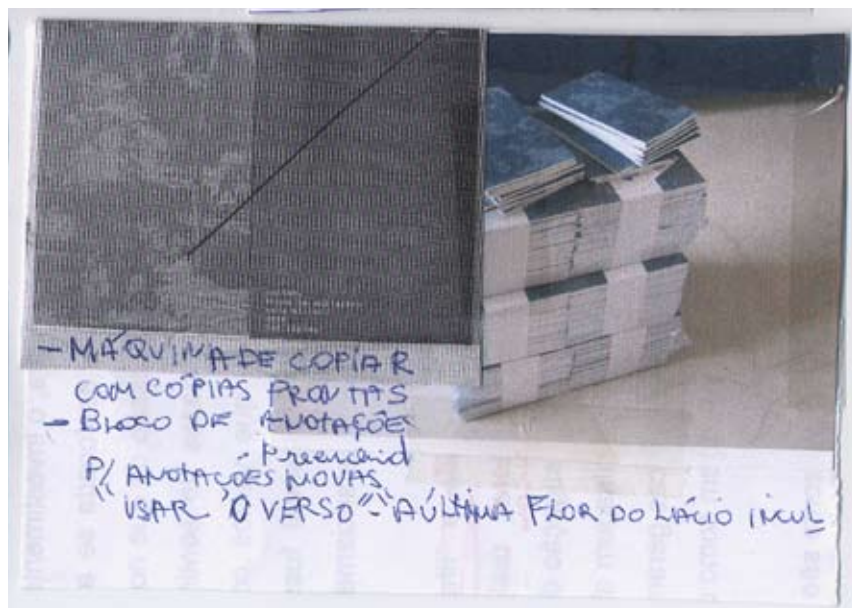 - MÁQUINA DE COPIAR
COM CÓPIAS PRONTAS
- BLOCO DE ANOTAÇÕE
Preenchid
P/ ANOTAÇÕES NOVAS
"USAR O VERSO" - "A ÚLTIMA FLOR DO LÁCIO INCUL